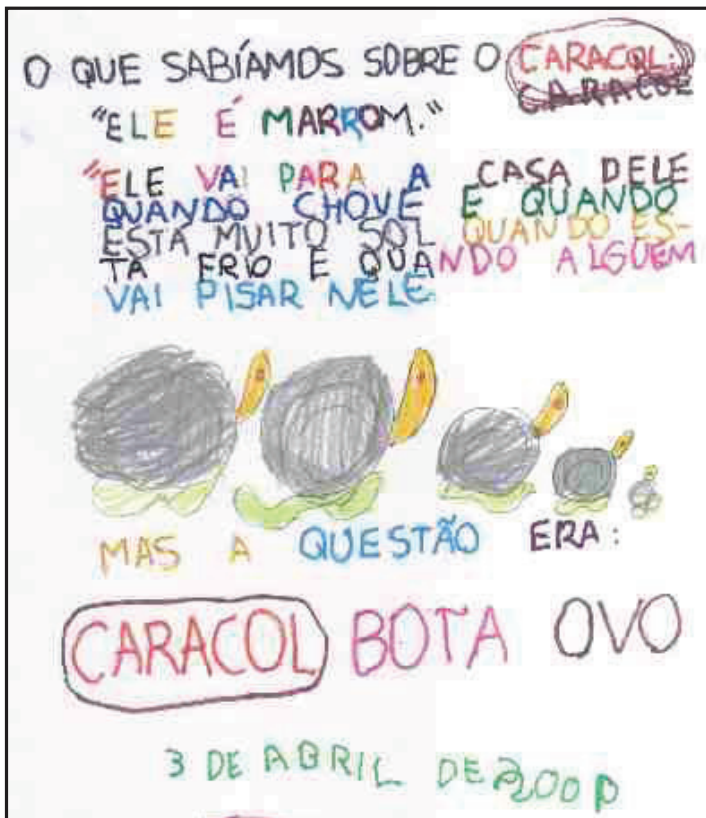 O QUE SABÍAMOS SOBRE O CARACOL:
CARACOL
"ELE É MARROM."
"ELE VAI PARA A CASA DELE
QUANDO CHOVE E QUANDO
ESTA MUITO SOL QUANDO ES-
TA FRIO E QUANDO ALGUEM
VAI PISAR NELE.
MAS A QUESTÃO ERA:
CARACOL BOTA OVO
3 DE ABRIL DE